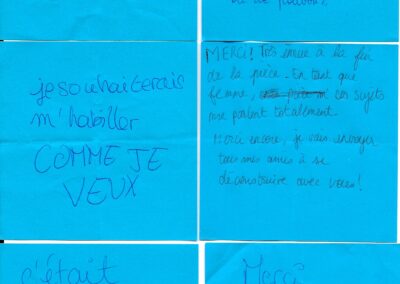 je souhaiterais
m'habiller
COMME JE
VEUX
MERCI! Très émue à la fin
de la pièce. En tant que
femme, ces sujets
me parlent totalement.
Merci encore, je vais envoyer
tous mes amis à se
déconstruire avec vous!
c'était
Merci